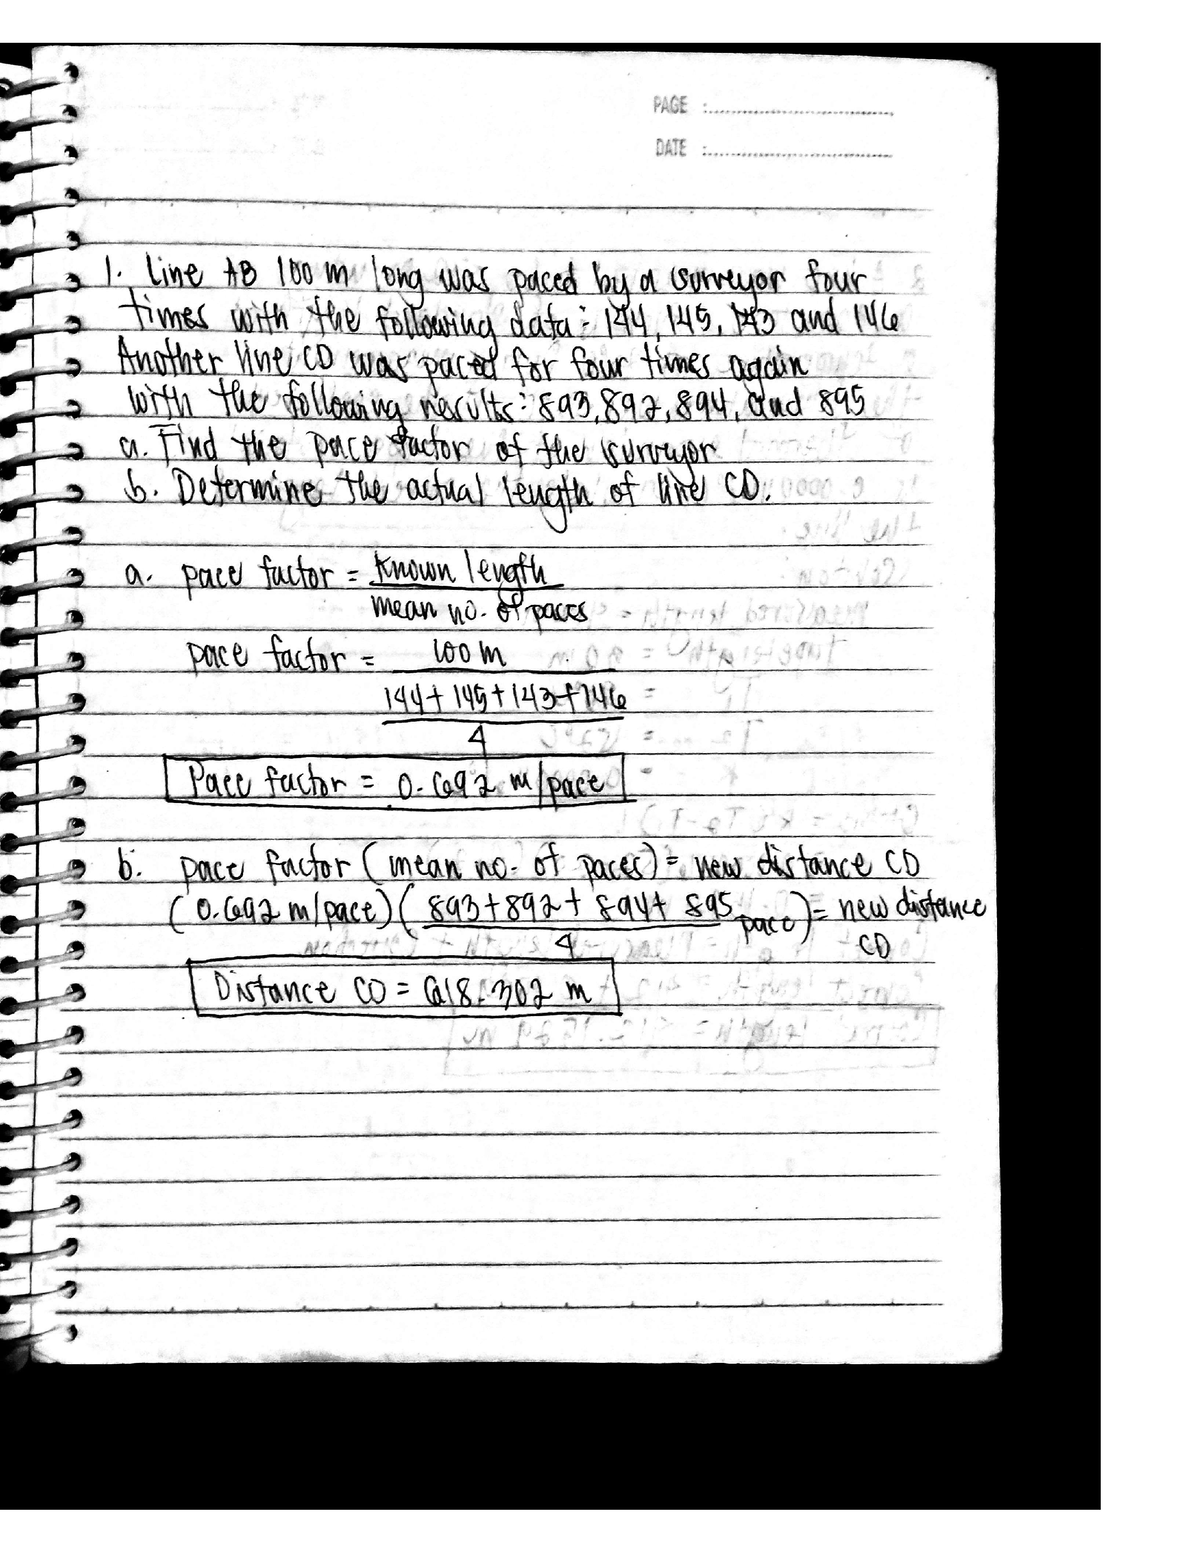 PAGE :
DATE :
1. Line AB 100 m long was paced by a surveyor four
times with the following data: 144, 145, 143 and 146
Another line CD was paced for four times again
with the following results: 893, 892, 894, and 895
a. Find the pace factor of the surveyor
b. Determine the actual length of line CD.
a. pace factor = known length
mean no. of paces
pace factor = 100 m
144 + 145 + 143 + 146
4
Pace factor = 0.692 m/pace
b. pace factor (mean no. of paces) = new distance CD
(0.692 m/pace) ( 893 + 892 + 894 + 895 pace ) = new distance
4 CD
Distance CD = 618.302 m